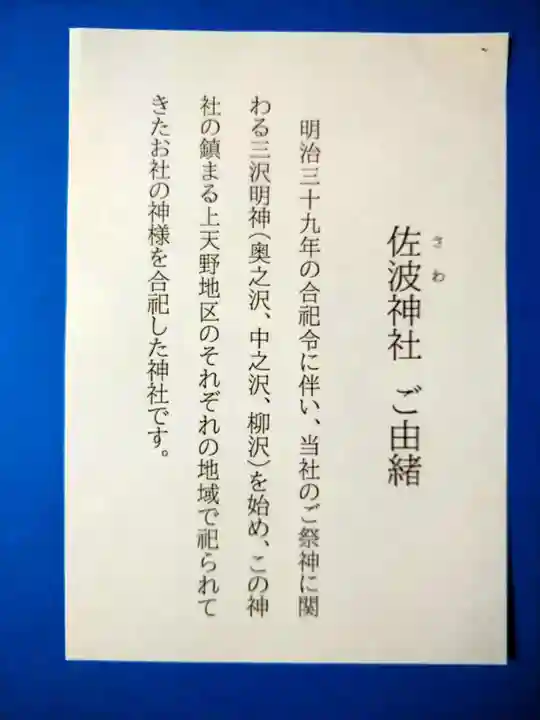 佐波神社 ご由緒
さわ
明治三十九年の合祀令に伴い、当社のご祭神に関
わる三沢明神（奥之沢、中之沢、柳沢）を始め、この神
社の鎮まる上天野地区のそれぞれの地域で祀られて
きたお社の神様を合祀した神社です。